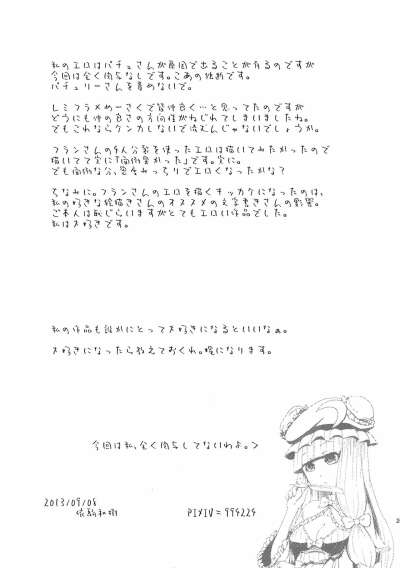 私のエロはパチュさんが原因で出ることが有るのですが
今回は全く関与なしです。こあの独断です。
パチュリーさんを責めないで。
レミフラメめーさくで皆仲良く…と思ってたのですが
どうにも仲の良さの方向性がねじれてしまいましたね。
でもこれならケンカしないで済むんじゃないでしょうか。
フランさんの4人分身を使ったエロは描いてみたかったので
描いてて実に「面倒臭かった」です。実に。
でも面倒な分、密度みっちりでエロくなったかな?
ちなみに。フランさんのエロを描くキッカケになったのは、
私の好きな絵描きさんのオススメの文字書きさんの影響。
ご本人は恥じらいますがとてもエロい作品でした。
私は大好きです。
私の作品も誰かにとって大好きになるといいなぁ。
大好きになったら教えておくれ。糧になります。
今回は私、全く関与してないわよ。>
2013/09/08
PIXIV=994224
2